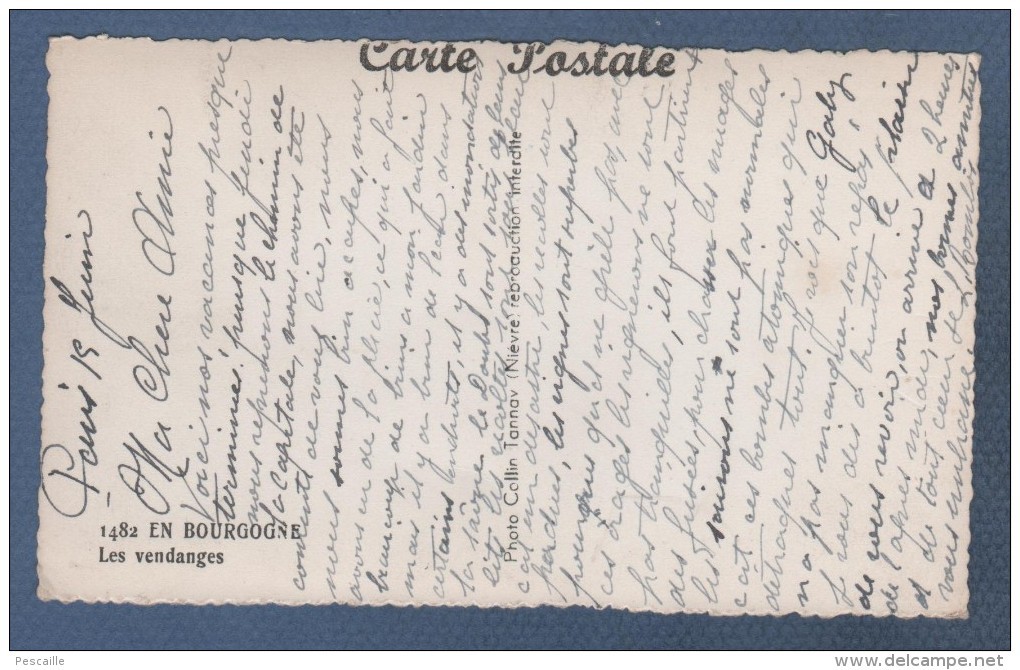 Carte Postale
Paris 15 Juin
Ma Chère Amie
Voici nos vacances presque
terminées, puisque jeudi
nous reprendrons le chemin de
la Capitale, nous avons été
contents de vous lire, nous
nous sommes bien
avons eu de la pluie, ce qui a fait
beaucoup de bien a mon jardin
mais il y a bien de l'eau dans
certains endroits, il y a des inondations
la Saône, le Doubs sont sortis de leurs
lits les
c'est un désastre, les récoltes sont
perdues, les vignes sont superbes
pourvu qu'il ne grêle pas, avec
ces orages les vignerons ne sont
pas tranquilles, ils font partirent
des fusées, pour chasser les nuages
les saisons ne sont pas normales
c'est ces bombes atomiques qui
détraquent tout. Je vois que Gaby
n'a pas manqué son repas,
nous dis a bientôt le plaisir
de vous revoir, on arrive a 2 heures
de l'après midi, nos bonnes amitiés
et de tout cœur, je
vous embrasse,
1482 EN BOURGOGNE
Les vendanges
Photo Collin Tannay (Nièvre) reproduction interdite
Pescaille
www.delcampe.net